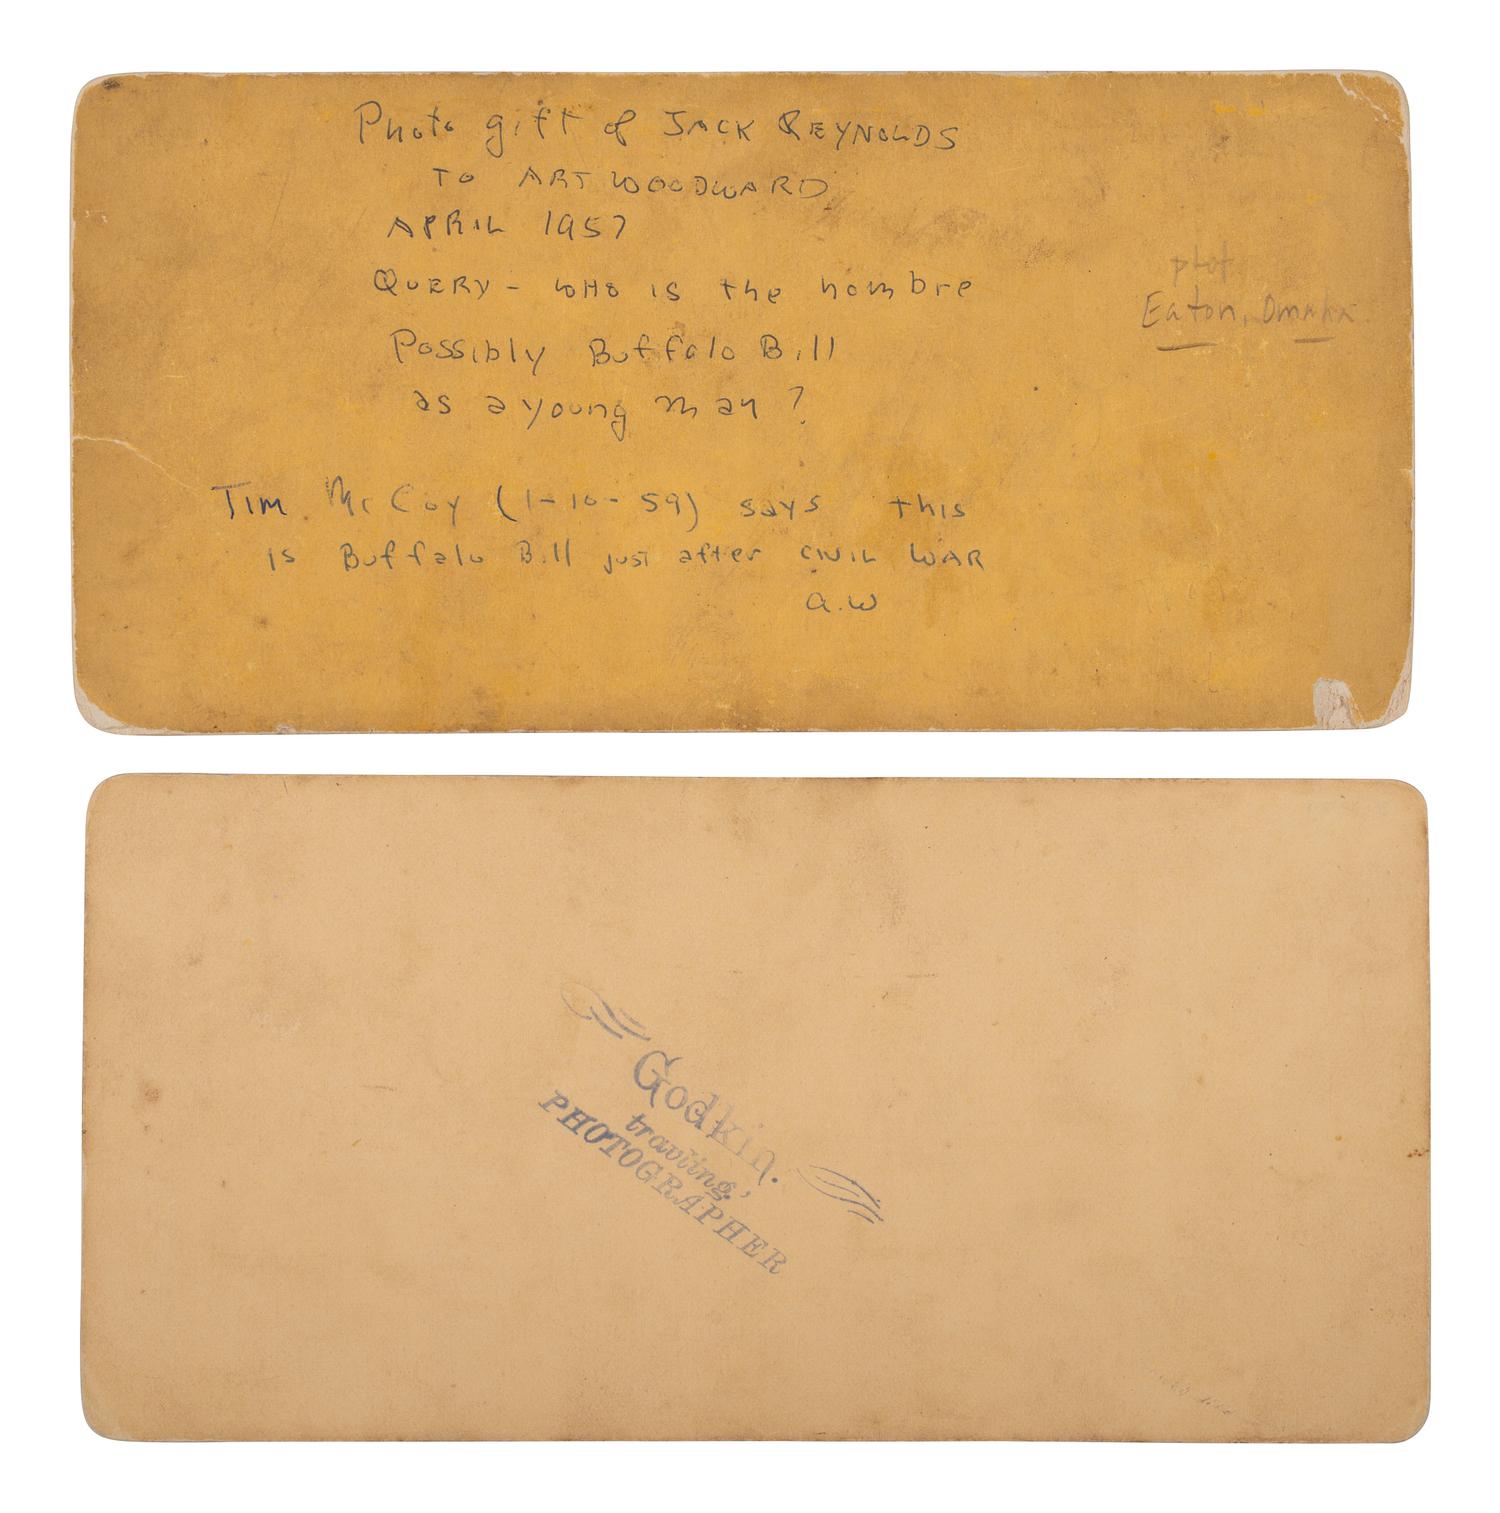 Photo gift of JACK REYNOLDS
TO ART WOODWARD
APRIL 1957
QUERY - WHO IS the hombre
Possibly Buffalo Bill
as a young man?
phot
Eaton, Omaha
TIM McCoy (1-10-59) says this
is Buffalo Bill just after CIVIL WAR
a.w
Godkin.
travling,
PHOTOGRAPHER